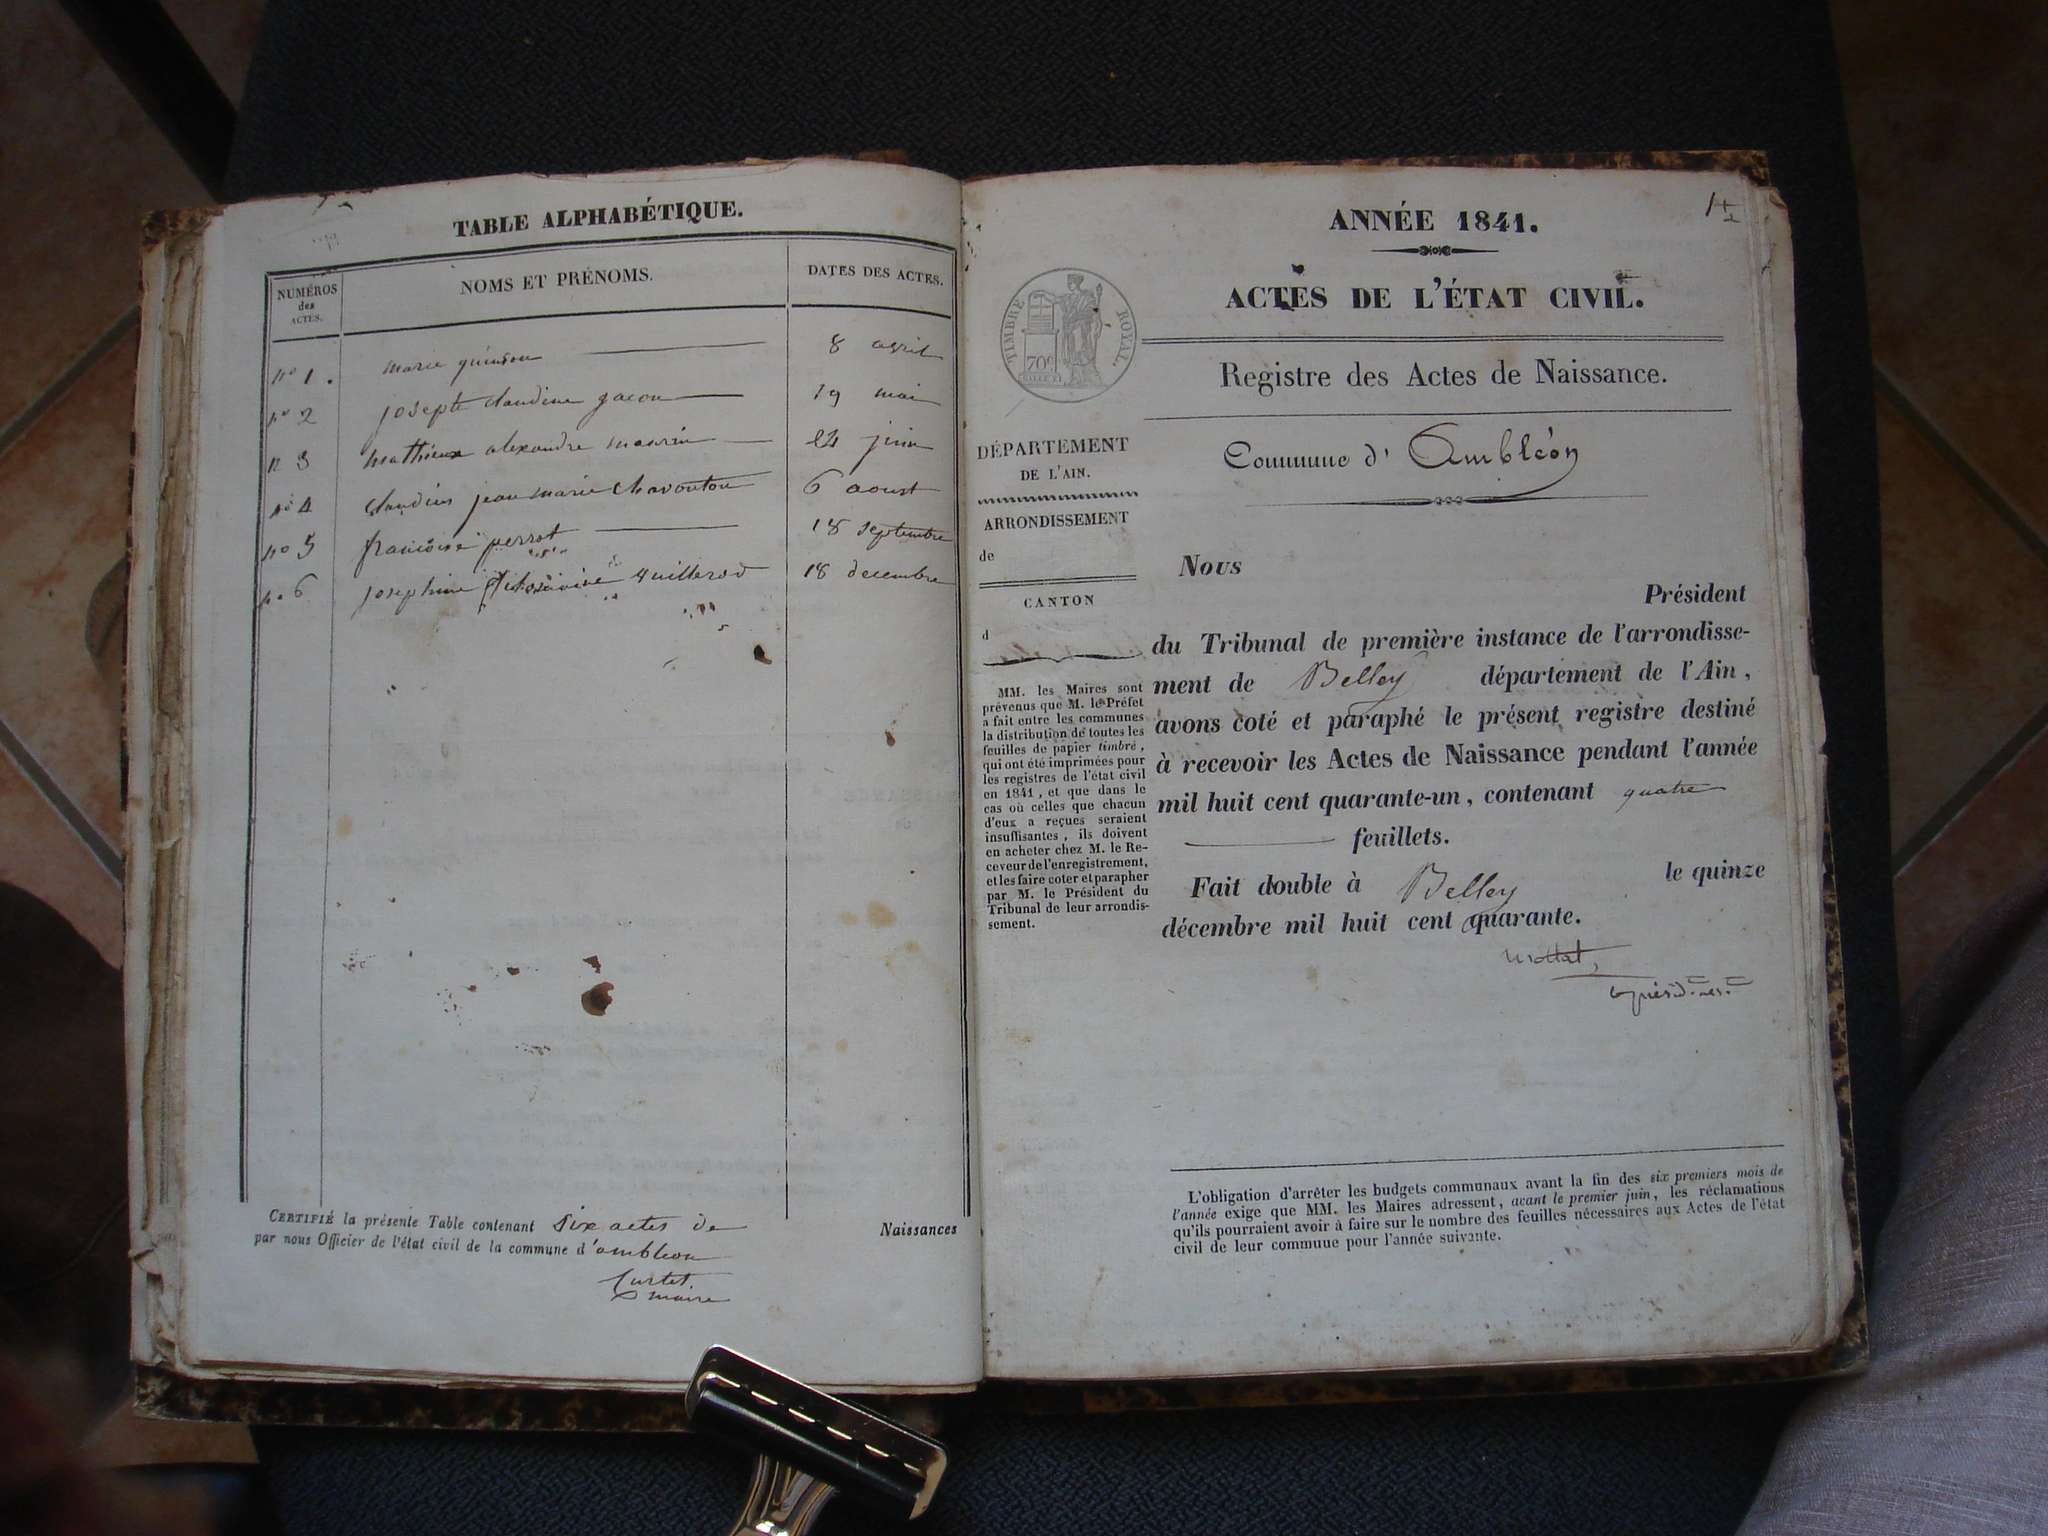 TABLE ALPHABÉTIQUE.
NUMÉROS
des
ACTES.
NOMS ET PRÉNOMS.
DATES DES ACTES.
no 1. marie quinson 8 avril
no 2 joseph claudine gacon 19 mai
n 3 mathieux alexandre maurin 24 juin
no 4 claudius jean marie chavonton 6 aoust
no 5 francoise perrot 18 septembre
no 6 josephine 18 decembre
CERTIFIÉ la présente Table contenant six actes de Naissances
par nous Officier de l'état civil de la commune d'ambleon
Curtet
maire
ANNÉE 1841.
ACTES DE L'ÉTAT CIVIL.
TIMBRE ROYAL.
70c
Registre des Actes de Naissance.
Commune d' Ambléon
DÉPARTEMENT
DE L'AIN.
ARRONDISSEMENT
de
CANTON
d
MM. les Maires sont
prévenus que M. le Préfet
a fait entre les communes
la distribution de toutes les
feuilles de papier timbré,
qui ont été imprimées pour
les registres de l'état civil
en 1841, et que dans le
cas où celles que chacun
d'eux a reçues seraient
insuffisantes, ils doivent
en acheter chez M. le Re-
ceveur de l'enregistrement,
et les faire coter et parapher
par M. le Président du
Tribunal de leur arrondis-
sement.
Nous
Président
du Tribunal de première instance de l'arrondisse-
ment de Belley département de l'Ain,
avons coté et paraphé le présent registre destiné
à recevoir les Actes de Naissance pendant l'année
mil huit cent quarante-un, contenant quatre
feuillets.
Fait double à Belley le quinze
décembre mil huit cent quarante.
L'obligation d'arrêter les budgets communaux avant la fin des six premiers mois de
l'année exige que MM. les Maires adressent, avant le premier juin, les réclamations
qu'ils pourraient avoir à faire sur le nombre des feuilles nécessaires aux Actes de l'état
civil de leur commune pour l'année suivante.